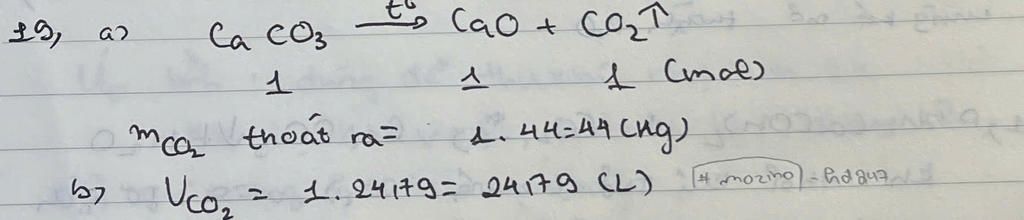 19, a) CaCO₃ —t°→ CaO + CO₂↑
1 1 1 (mol)
mCO₂ thoát ra = 1.44=44 (kg)
b) VCO₂ = 1.24,79= 24,79 (L) # mozino - hd847